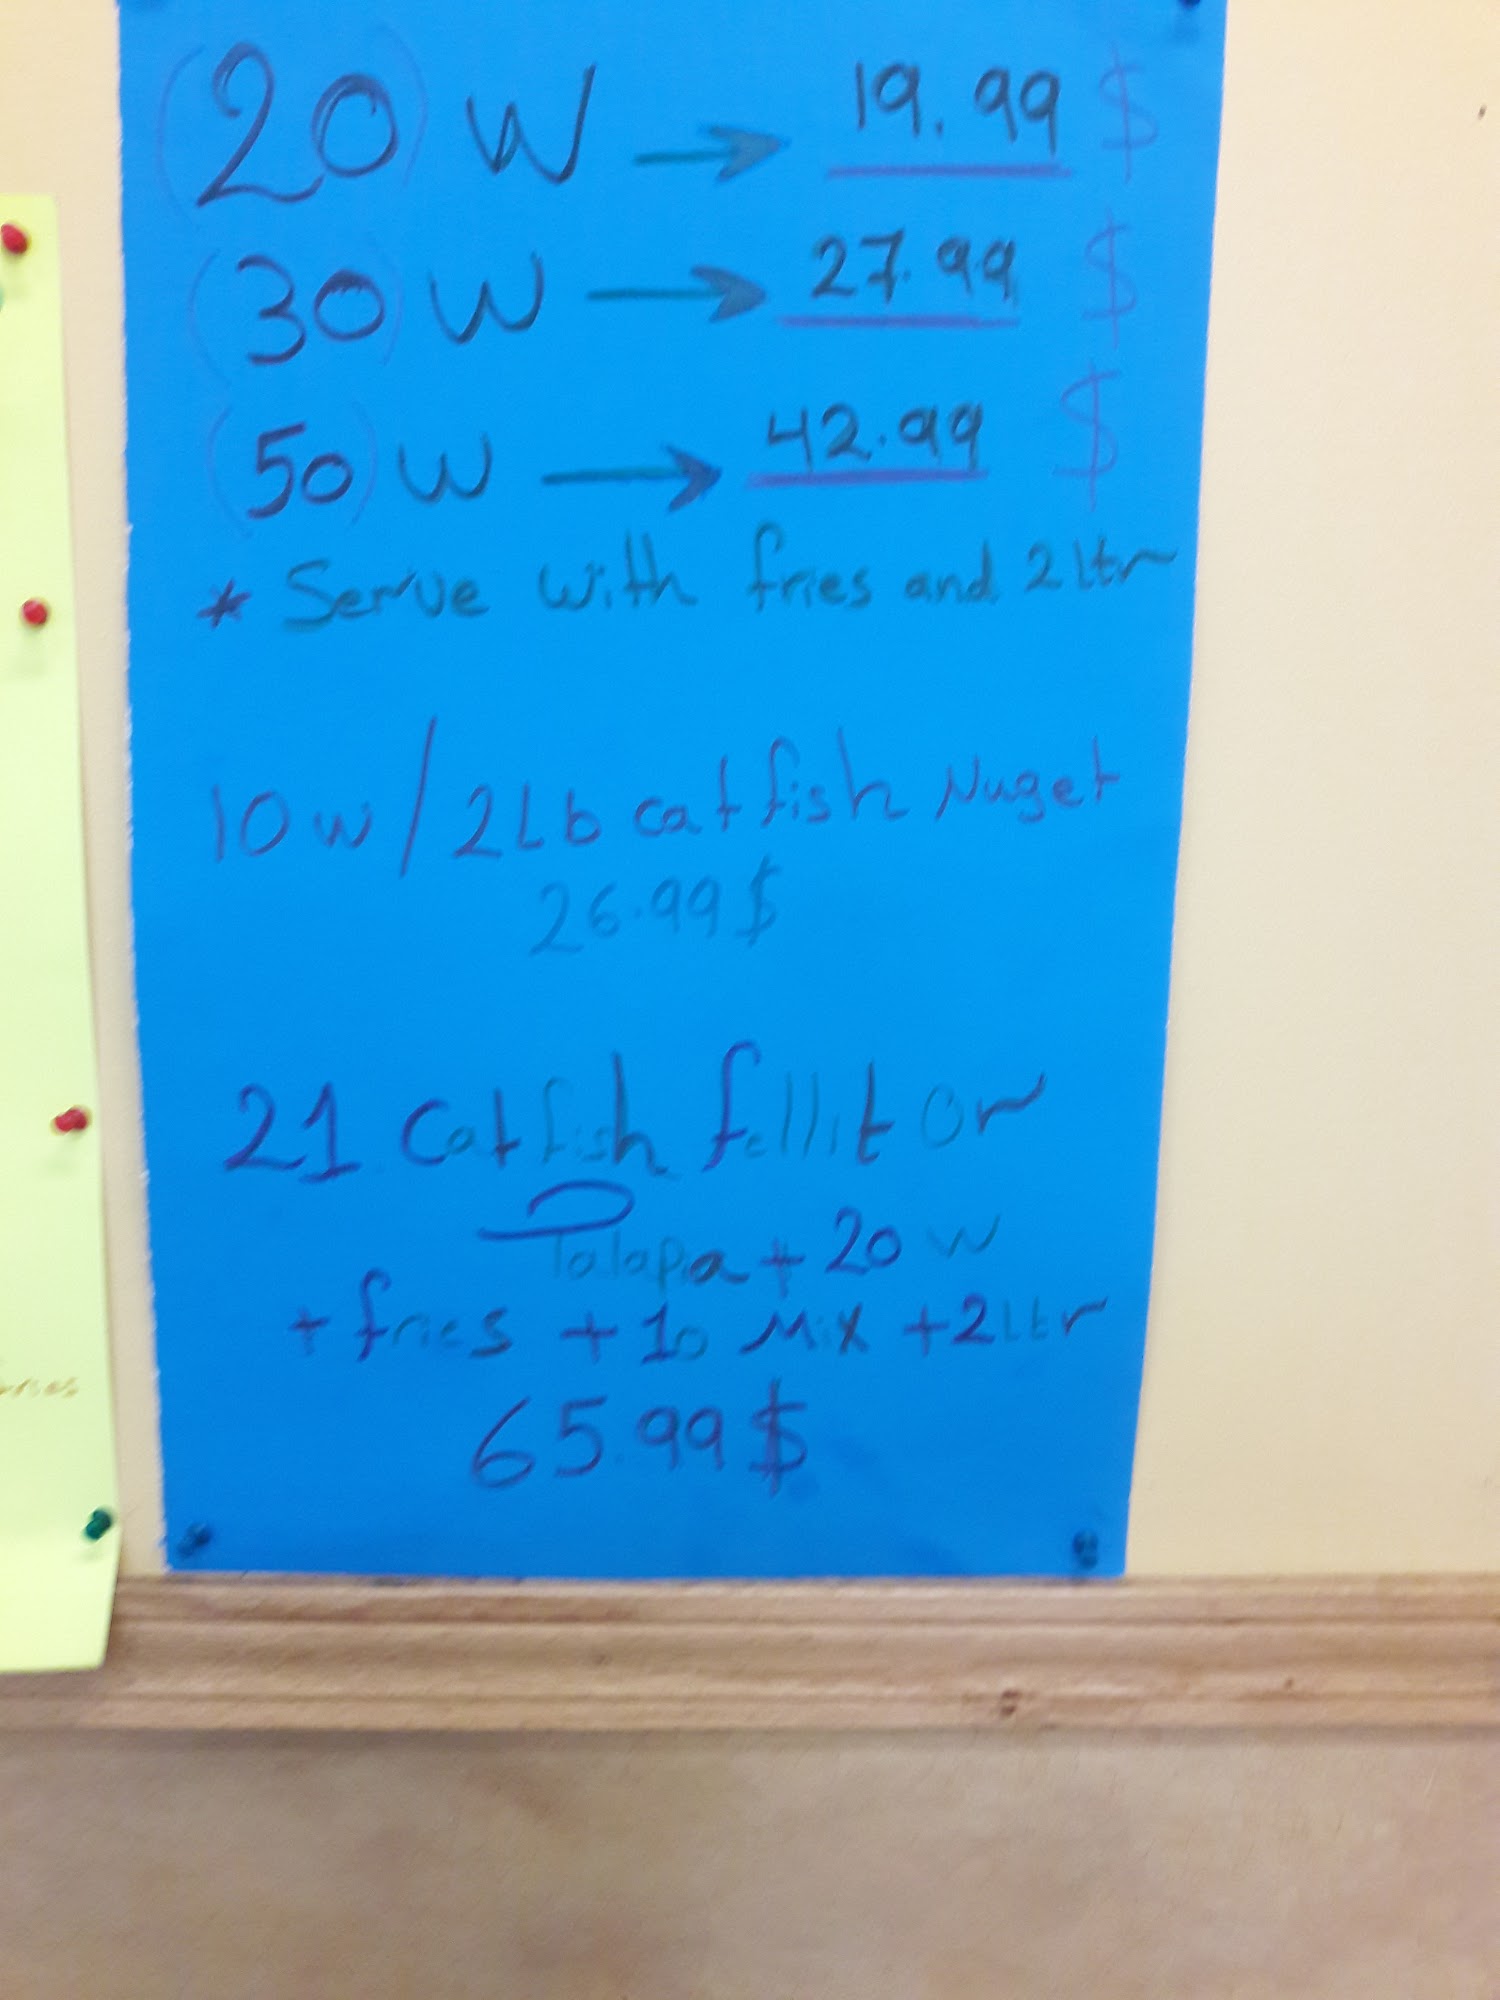 (20) W → 19.99 $
(30) W → 27.99 $
(50) W → 42.99 $
* Serve with fries and 2 Ltr
10 w / 2 Lb catfish Nuget
26.99 $
21 Catfish fellit or
Talapia + 20 W
+ fries + 10 Mix + 2 Ltr
65.99 $